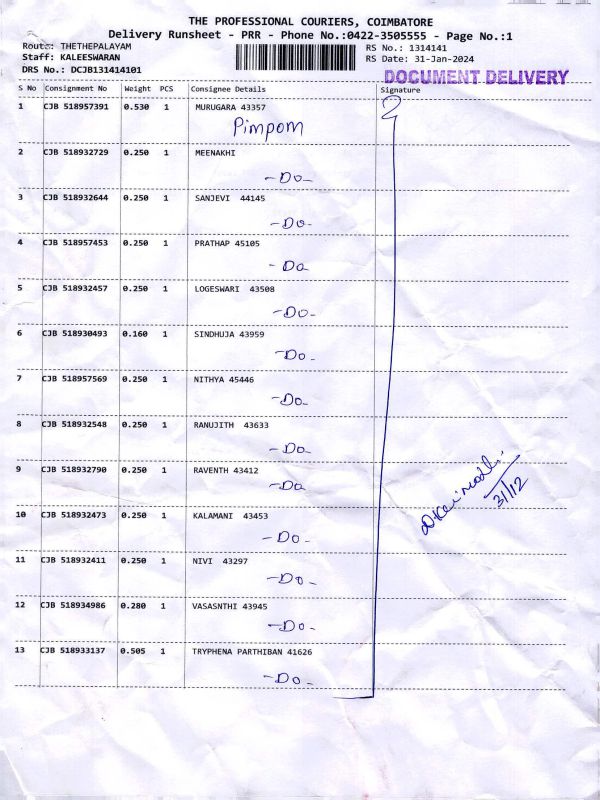 THE PROFESSIONAL COURIERS, COIMBATORE
Delivery Runsheet - PRR - Phone No.:0422-3505555 - Page No.:1
Route: THETHEPALAYAM RS No.: 1314141
Staff: KALEESWARAN RS Date: 31-Jan-2024
DRS No.: DCJB131414101 DOCUMENT DELIVERY
S No Consignment No Weight PCS Consignee Details Signature
1 CJB 518957391 0.530 1 MURUGARA 43357
Pimpom
2 CJB 518932729 0.250 1 MEENAKHI
-Do-
3 CJB 518932644 0.250 1 SANJEVI 44145
-Do-
4 CJB 518957453 0.250 1 PRATHAP 45105
-Do
5 CJB 518932457 0.250 1 LOGESWARI 43508
-Do-
6 CJB 518930493 0.160 1 SINDHUJA 43959
-Do-
7 CJB 518957569 0.250 1 NITHYA 45446
-Do-
8 CJB 518932548 0.250 1 RANUJITH 43633
-Do-
9 CJB 518932790 0.250 1 RAVENTH 43412
-Do
31/12
10 CJB 518932473 0.250 1 KALAMANI 43453
-Do-
11 CJB 518932411 0.250 1 NIVI 43297
-Do-
12 CJB 518934986 0.280 1 VASASNTHI 43945
-Do-
13 CJB 518933137 0.505 1 TRYPHENA PARTHIBAN 41626
-Do-